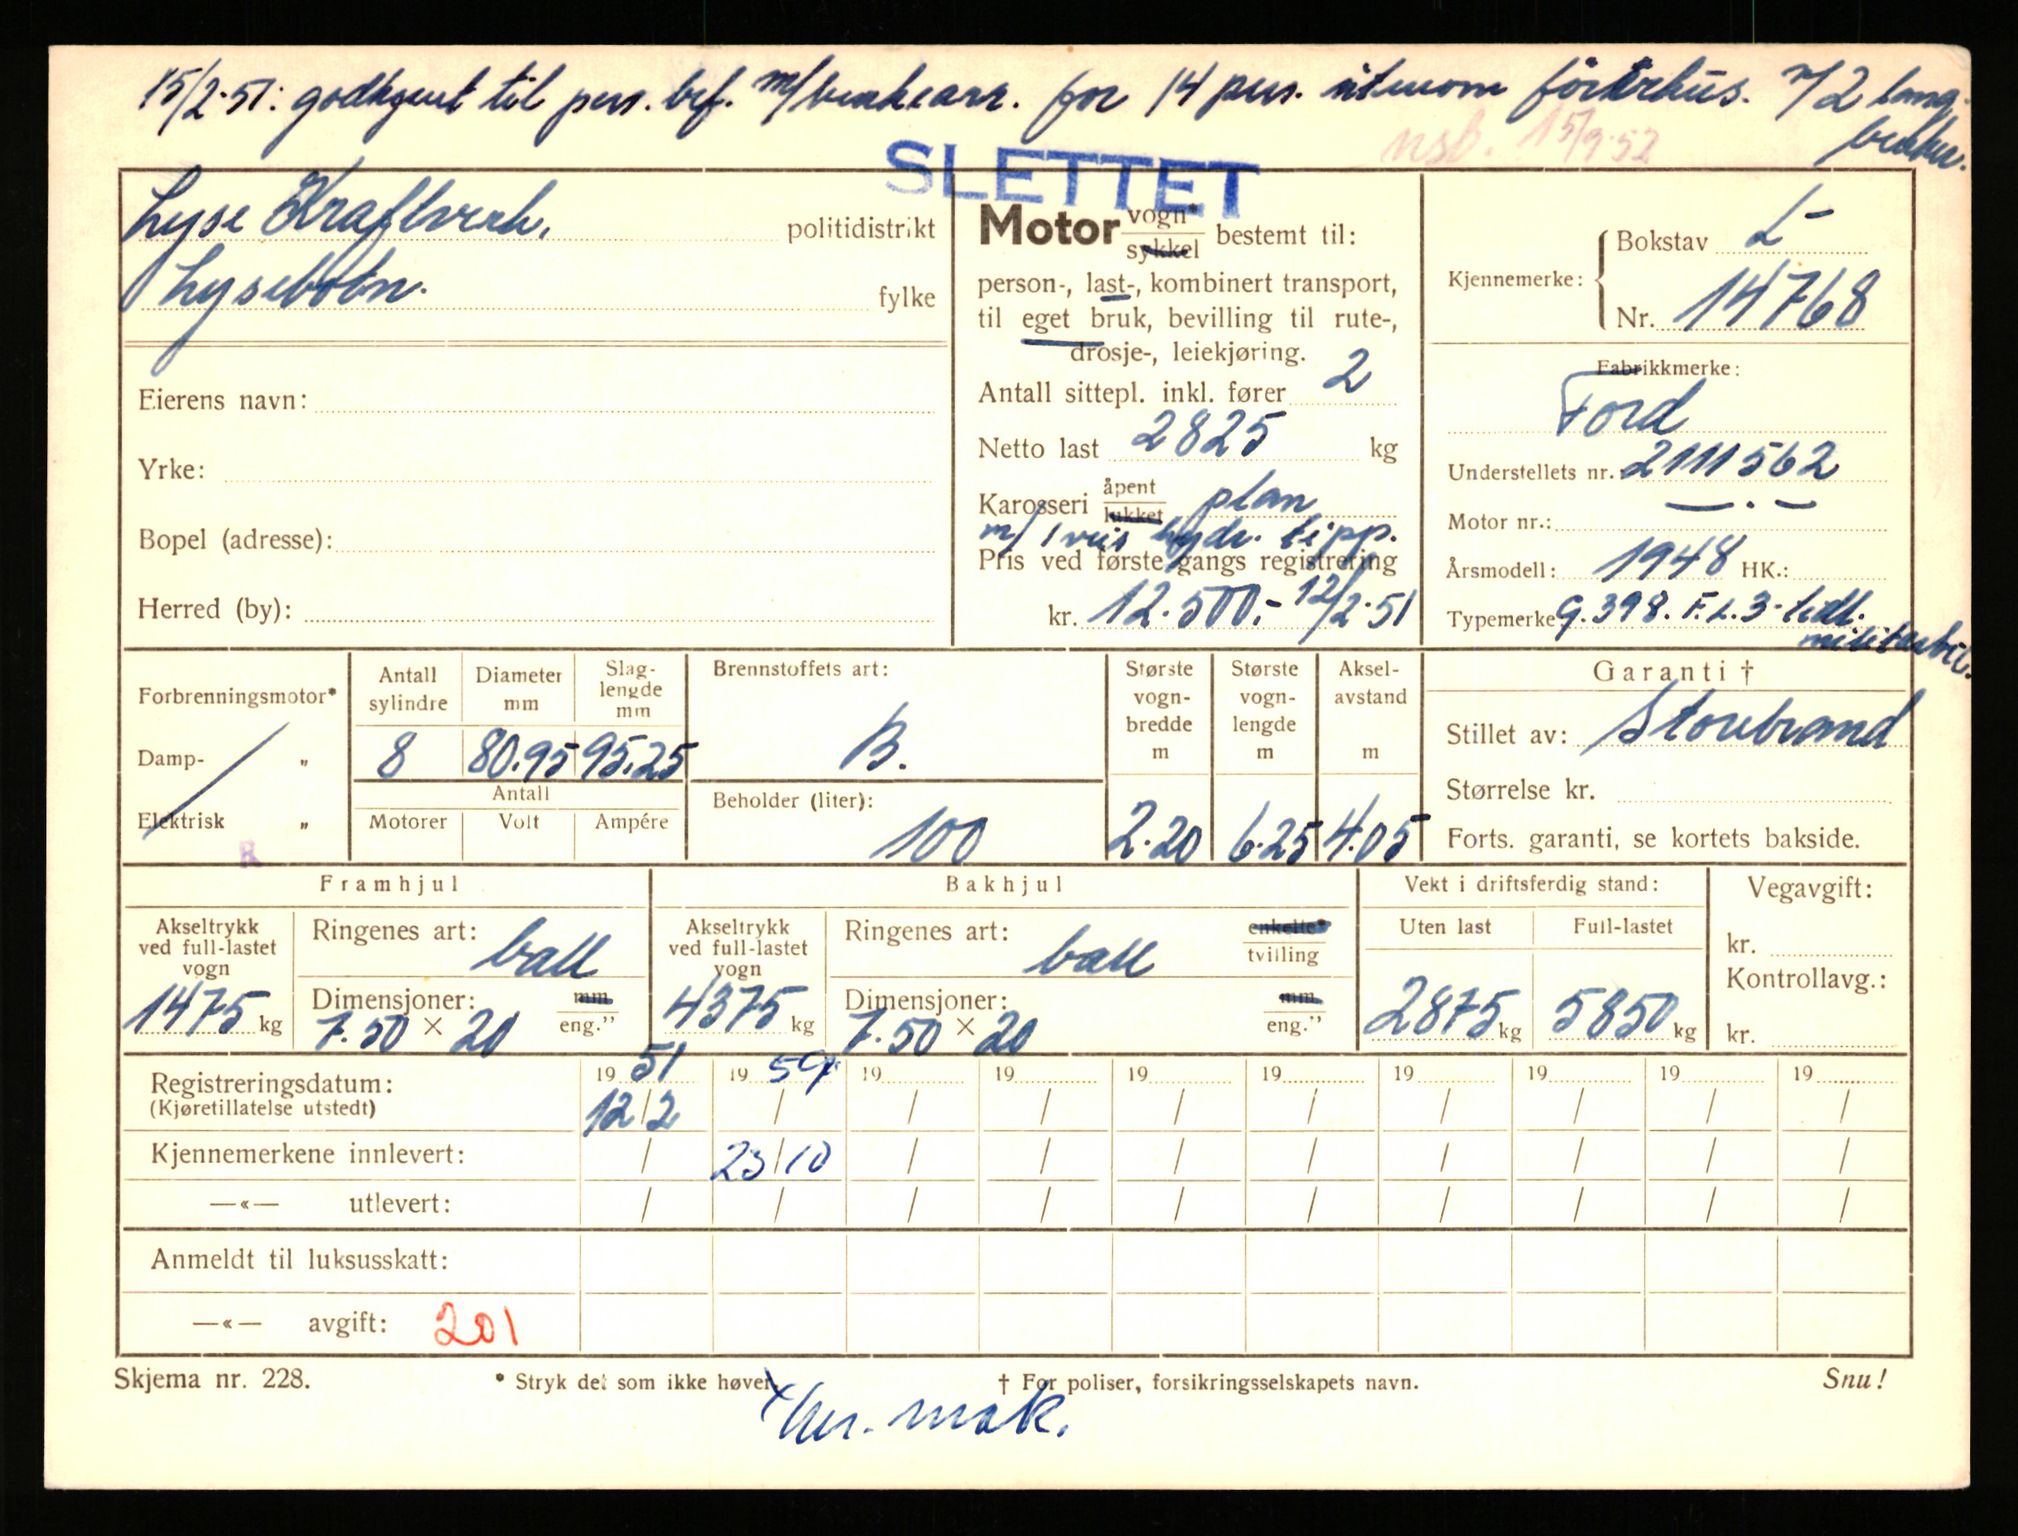 15/2-51: godkjent til pers. bef. m/benkearr. for 14 pers. utenom förerhus. m/2 lang-
benker.
nsb. 15/9-52
SLETTET
Lyse Kraftverk, politidistrikt
Lysebotn. fylke
Eierens navn:
Yrke:
Bopel (adresse):
Herred (by):
Motor vogn* sykkel bestemt til:
person-, last-, kombinert transport,
til eget bruk, bevilling til rute-,
drosje-, leiekjøring.
Antall sittepl. inkl. fører 2
Netto last 2825 kg
Karosseri åpent lukket plan
m/ 1 veis hydr. tipp.
Pris ved første gangs registrering
kr. 12.500,- 12/2-51
Kjennemerke: Bokstav L-
Nr. 14768
Fabrikkmerke:
Ford
Understellets nr. 2111562
Motor nr.: — . —
Årsmodell: 1948 HK.:
Typemerke G.398. F.L.3- tidl.
militærbil.
Forbrenningsmotor*
Damp- "
Elektrisk "
R
Antall sylindre Diameter mm Slag-lengde mm
8 80.95 95.25
Antall
Motorer Volt Ampére
Brennstoffets art:
B.
Beholder (liter):
100
Største vogn-bredde m Største vogn-lengde m Aksel-avstand m
2.20 6.25 4.05
Garanti †
Stillet av: Storebrand
Størrelse kr.
Forts. garanti, se kortets bakside.
Framhjul
Akseltrykk ved full-lastet vogn
1475 kg
Ringenes art: ball
Dimensjoner: mm eng."
7.50 × 20
Bakhjul
Akseltrykk ved full-lastet vogn
4375 kg
Ringenes art: ball enkelte* tvilling
Dimensjoner: mm eng."
7.50 × 20
Vekt i driftsferdig stand:
Uten last Full-lastet
2875 kg 5850 kg
Vegavgift:
kr.
Kontrollavg.:
kr.
Registreringsdatum: 19 51 19 59 19 19 19 19 19 19 19 19
(Kjøretillatelse utstedt) 12/2 / / / / / / / / /
Kjennemerkene innlevert: / 23/10 / / / / / / / /
—«— utlevert: / / / / / / / / / /
Anmeldt til luksusskatt:
—«— avgift: 201
Skjema nr. 228. * Stryk det som ikke høver. † For poliser, forsikringsselskapets navn. Snu!